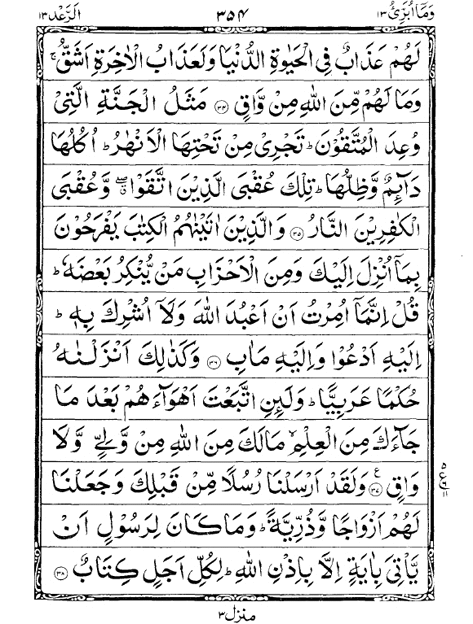 وَمَآ اُبَرِّئُ ١٣
٣٥٤
اَلرَّعْد ١٣
لَهُمْ عَذَابٌ فِى الْحَيٰوةِ الدُّنْيَا وَلَعَذَابُ الْاٰخِرَةِ اَشَقُّ ۚ
وَمَا لَهُمْ مِّنَ اللّٰهِ مِنْ وَّاقٍ ﴿٣٤﴾ مَثَلُ الْجَنَّةِ الَّتِىْ
وُعِدَ الْمُتَّقُوْنَ ؕ تَجْرِىْ مِنْ تَحْتِهَا الْاَنْهٰرُ ؕ اُكُلُهَا
دَآئِمٌ وَّظِلُّهَا ؕ تِلْكَ عُقْبَى الَّذِيْنَ اتَّقَوْا ۖ وَّعُقْبَى
الْكٰفِرِيْنَ النَّارُ ﴿٣٥﴾ وَالَّذِيْنَ اٰتَيْنٰهُمُ الْكِتٰبَ يَفْرَحُوْنَ
بِمَآ اُنْزِلَ اِلَيْكَ وَمِنَ الْاَحْزَابِ مَنْ يُّنْكِرُ بَعْضَهٗ ؕ
قُلْ اِنَّمَآ اُمِرْتُ اَنْ اَعْبُدَ اللّٰهَ وَلَآ اُشْرِكَ بِهٖ ؕ
اِلَيْهِ اَدْعُوْا وَاِلَيْهِ مَاٰبِ ﴿٣٦﴾ وَكَذٰلِكَ اَنْزَلْنٰهُ
حُكْمًا عَرَبِيًّا ؕ وَلَئِنِ اتَّبَعْتَ اَهْوَآءَهُمْ بَعْدَ مَا
جَآءَكَ مِنَ الْعِلْمِ ۙ مَا لَكَ مِنَ اللّٰهِ مِنْ وَّلِىٍّ وَّلَا
وَاقٍ ﴿٣٧﴾ ع وَلَقَدْ اَرْسَلْنَا رُسُلًا مِّنْ قَبْلِكَ وَجَعَلْنَا
لَهُمْ اَزْوَاجًا وَّذُرِّيَّةً ؕ وَمَا كَانَ لِرَسُوْلٍ اَنْ
يَّاْتِىَ بِاٰيَةٍ اِلَّا بِاِذْنِ اللّٰهِ ؕ لِكُلِّ اَجَلٍ كِتَابٌ ﴿٣٨﴾
منزل ٣